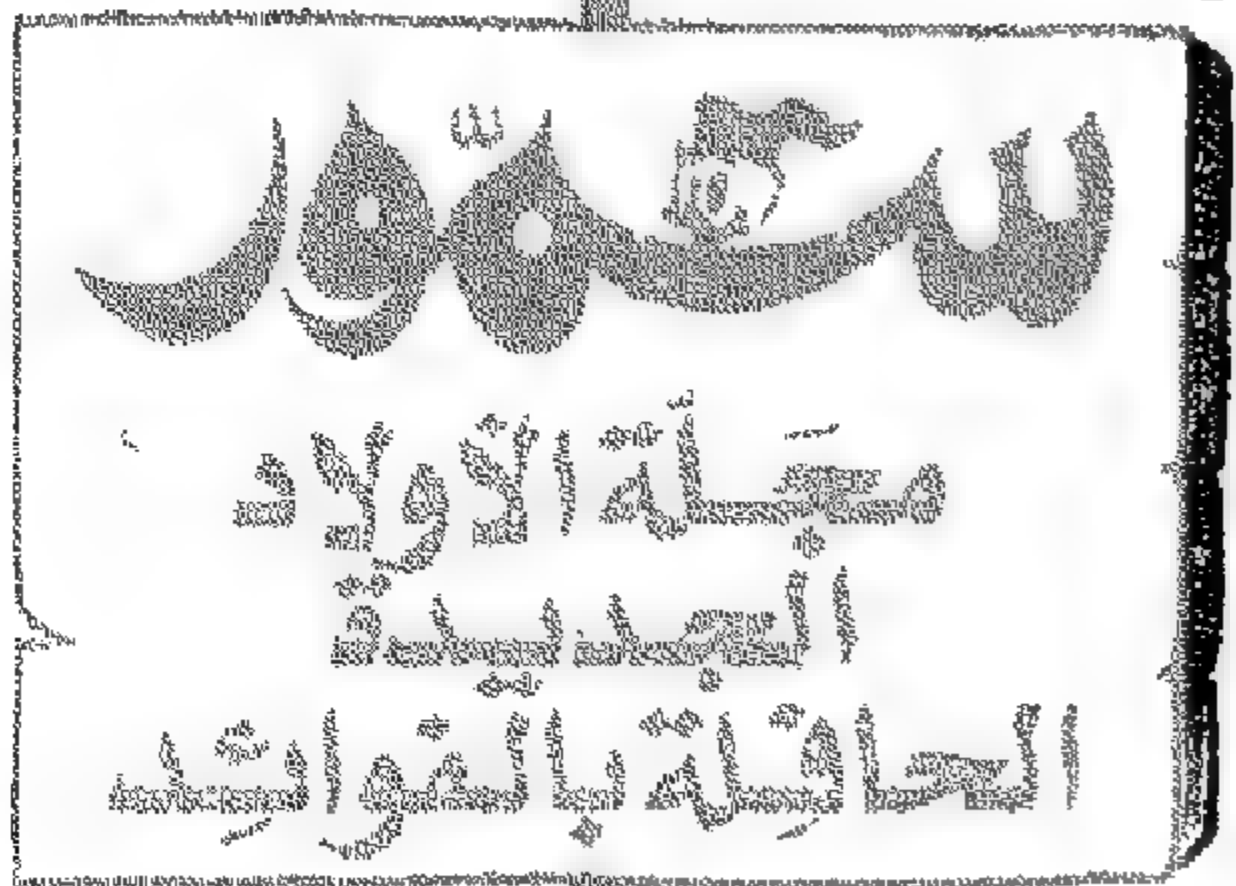 سنفور
مجَلة الأولاد
الجديدة
الحافلة بالفوائد